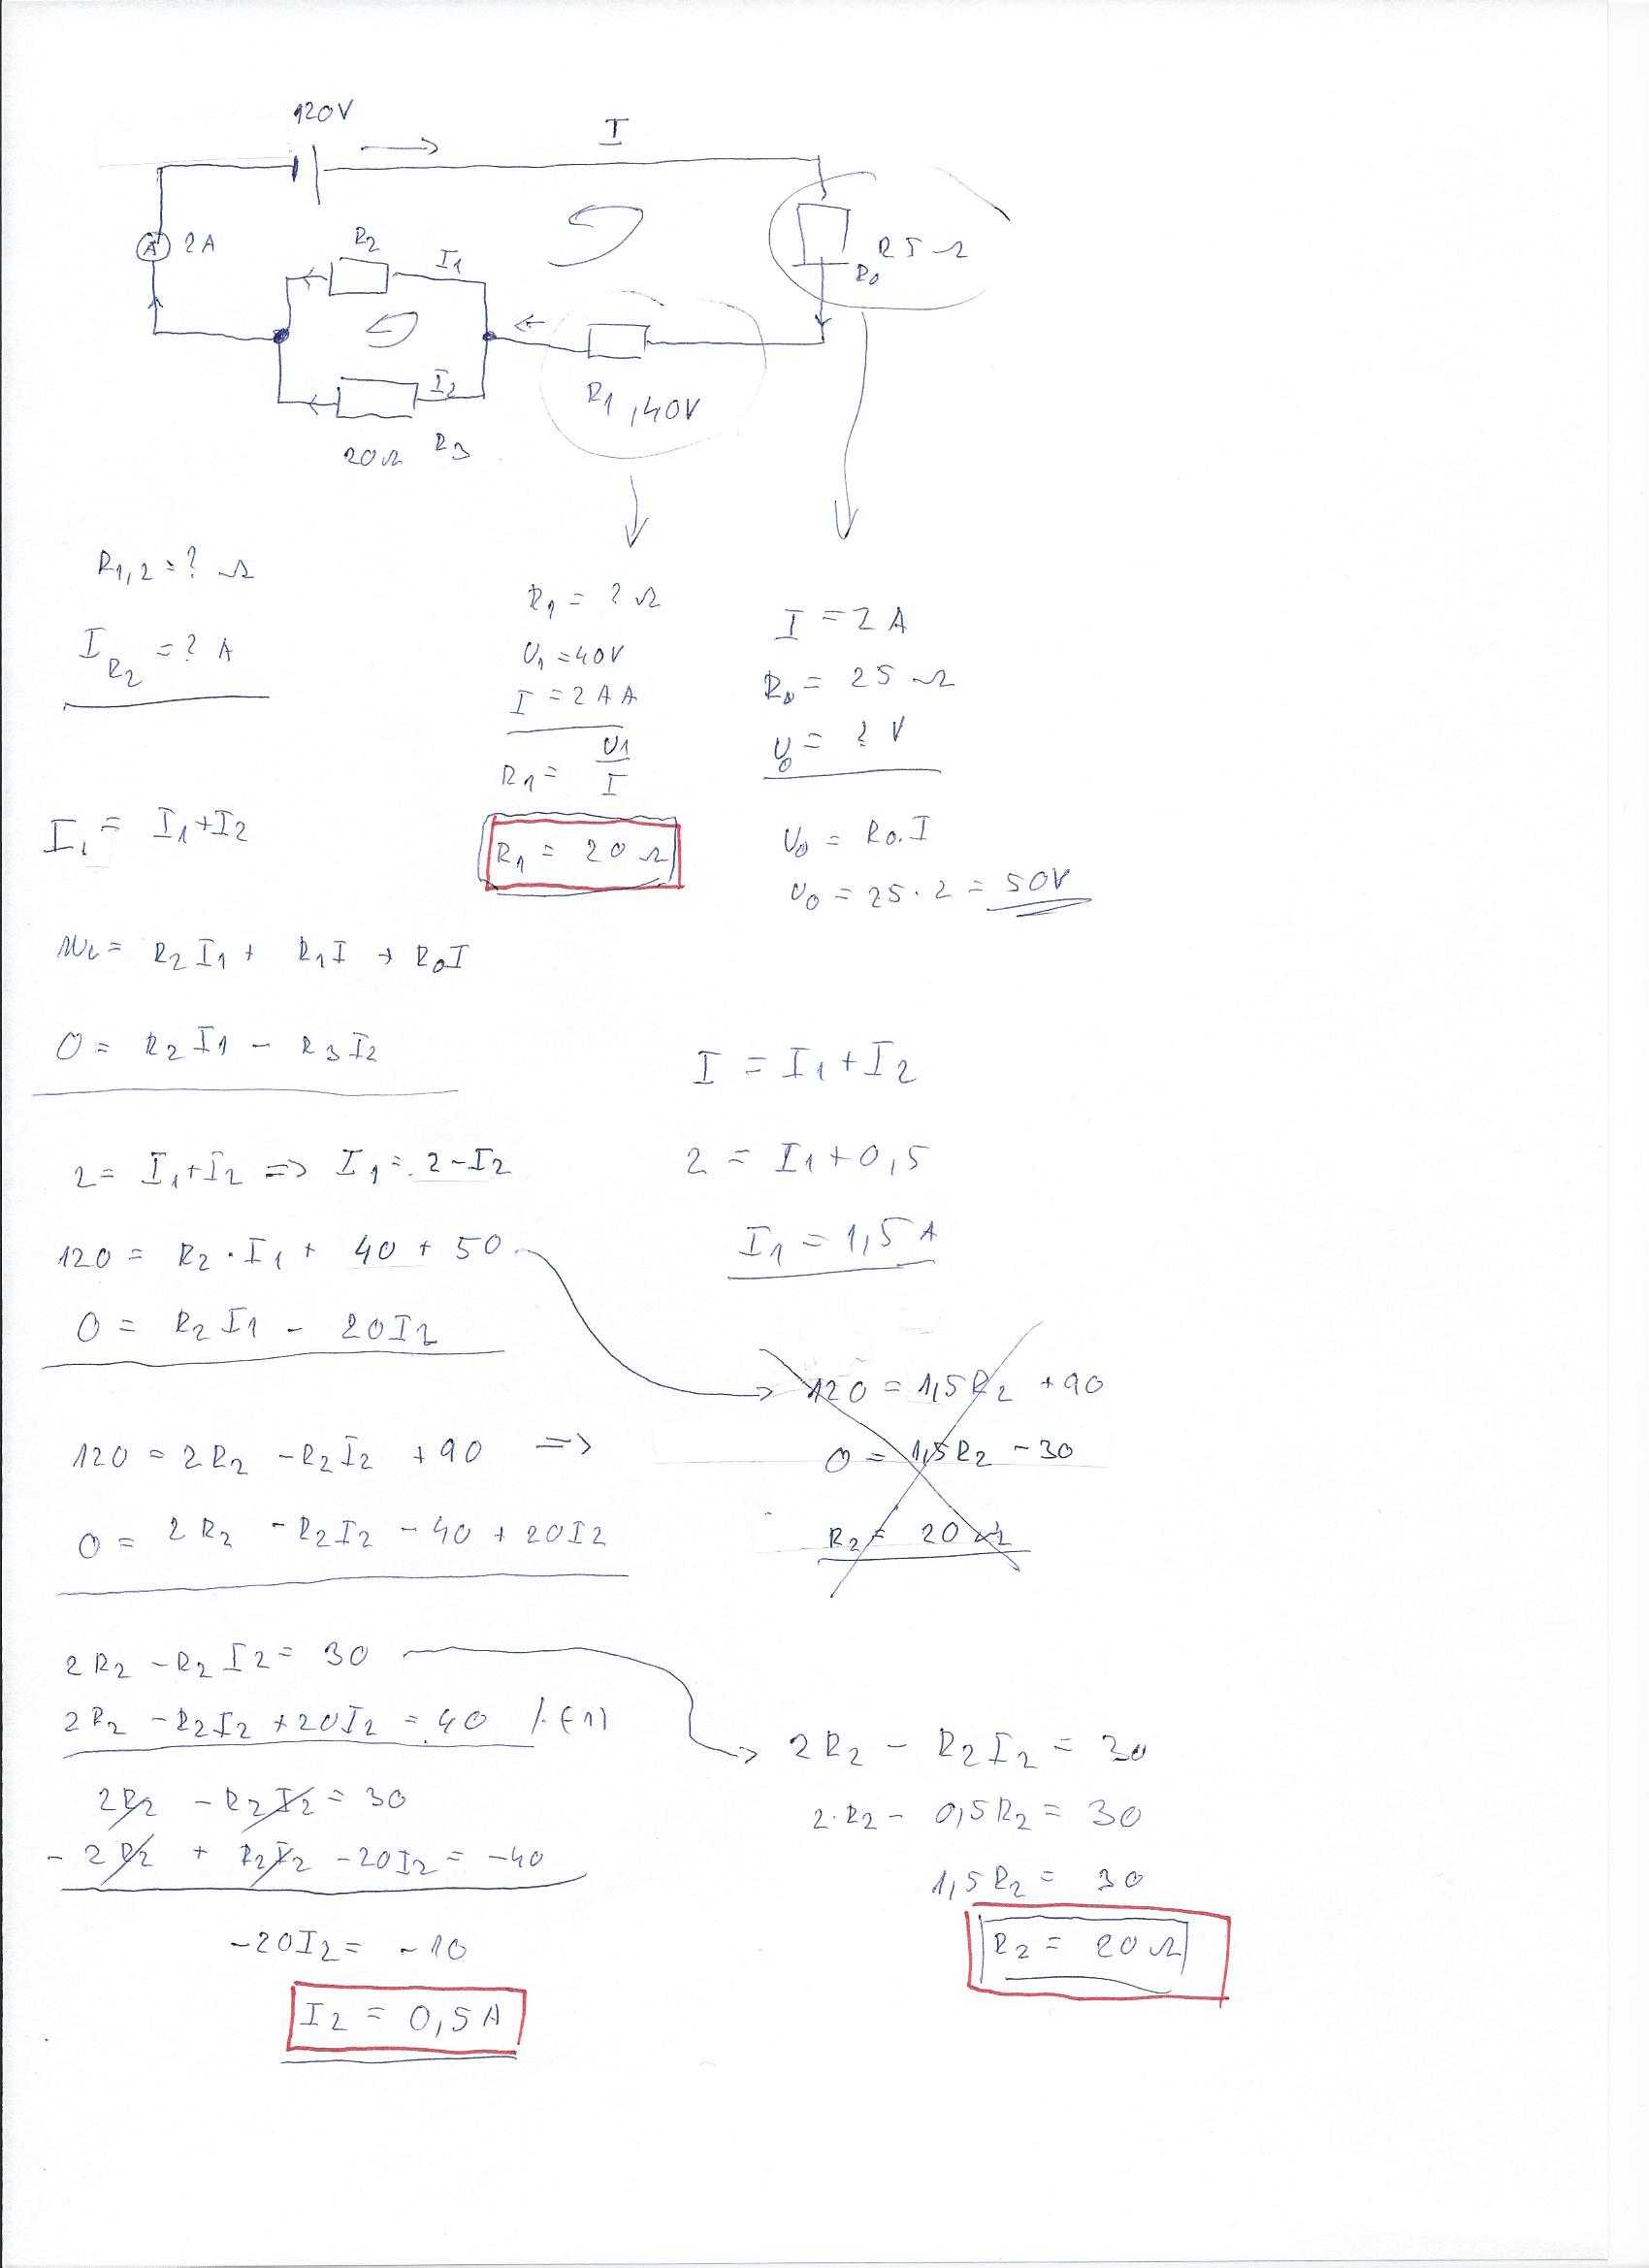 120V
I
A 2A
R2
I1
25Ω
R0
I2
R1, 40V
20Ω R3
R1,2 = ? Ω
I R2 = ? A
R1 = ? Ω
U1 = 40V
I = 2 A A
R1 = U1/I
R1 = 20 Ω
I = 2 A
R0 = 25 Ω
U0 = ? V
U0 = R0.I
U0 = 25 · 2 = 50V
I1 = I1+I2
R2I1 + R1I + R0I
0 = R2I1 - R3I2
2 = I1+I2 => I1 = 2-I2
120 = R2 · I1 + 40 + 50
0 = R2I1 - 20I2
I = I1 + I2
2 = I1 + 0,5
I1 = 1,5 A
120 = 1,5R2 + 90
0 = 1,5R2 - 30
R2 = 20 Ω
120 = 2R2 - R2I2 + 90 =>
0 = 2R2 - R2I2 - 40 + 20I2
2R2 - R2I2 = 30
2R2 - R2I2 + 20I2 = 40 /·(-1)
2R2 - R2I2 = 30
-2R2 + R2I2 - 20I2 = -40
-20I2 = -10
I2 = 0,5A
2R2 - R2I2 = 30
2·R2 - 0,5R2 = 30
1,5R2 = 30
R2 = 20Ω